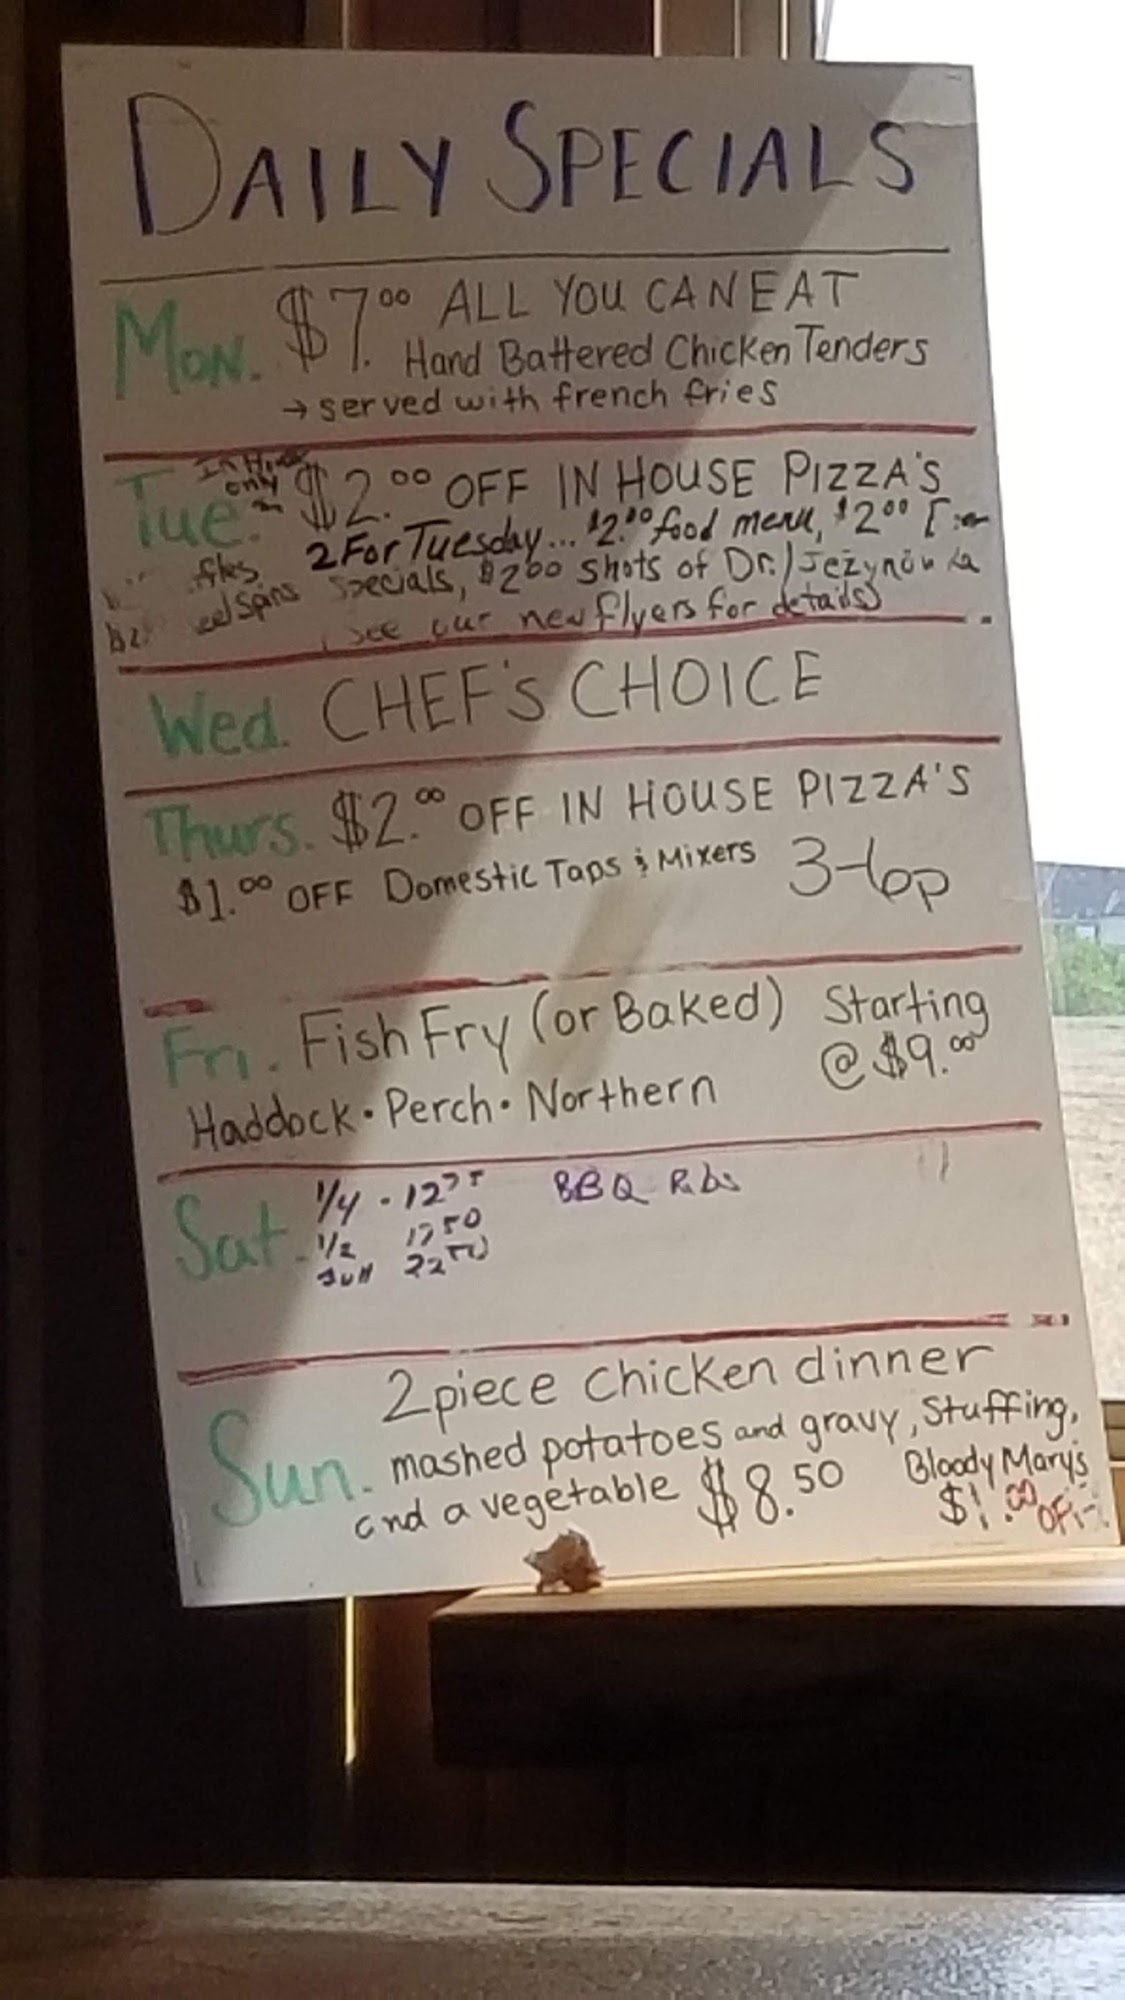 DAILY SPECIALS
Mon. $7.00 ALL YOU CAN EAT
Hand Battered Chicken Tenders
→ served with french fries
Tue. only $2.00 OFF IN HOUSE PIZZA'S
2 For Tuesday... $2.00 food menu, $2.00
specials, $2.00 shots of Dr./Jezynowka
see our new flyers for details)
Wed. CHEF'S CHOICE
Thurs. $2.00 OFF IN HOUSE PIZZA'S
$1.00 OFF Domestic Taps & Mixers 3-6p
Fri. Fish Fry (or Baked) Starting
@ $9.00
Haddock • Perch • Northern
Sat. 1/4 - BBQ Ribs
1/2 1750
full
2 piece chicken dinner
Sun. mashed potatoes and gravy, stuffing,
and a vegetable $8.50 Bloody Mary's
$1.00 OFF